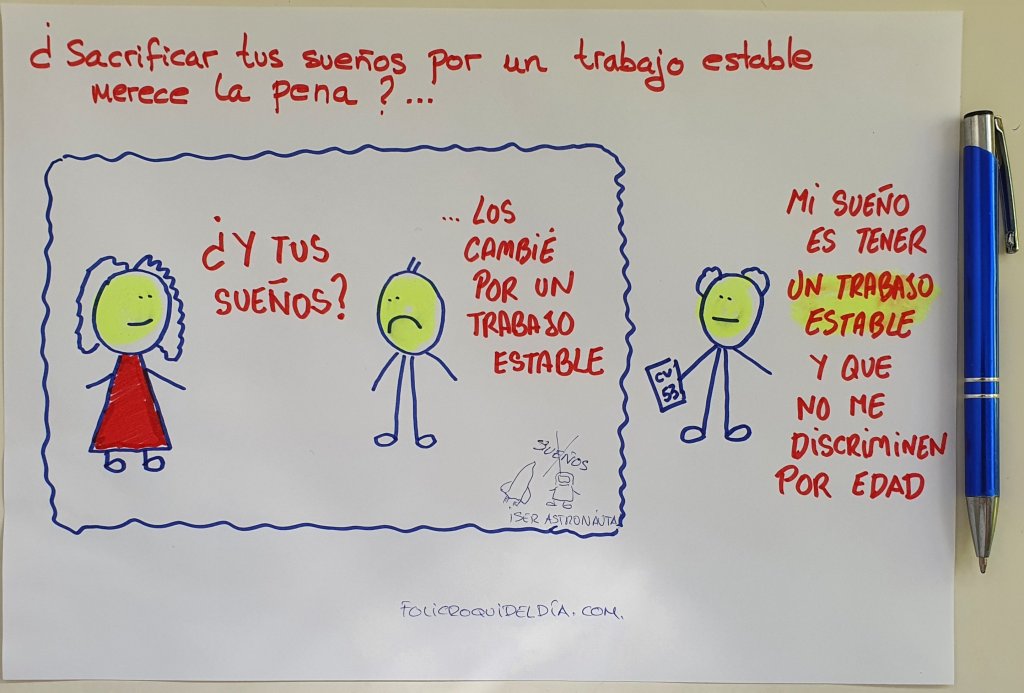 ¿Sacrificar tus sueños por un trabajo estable
merece la pena?...
¿Y TUS
SUEÑOS?
... LOS
CAMBIÉ
POR UN
TRABAJO
ESTABLE
SUEÑOS
¡SER ASTRONAUTA
CV
53
MI SUEÑO
ES TENER
UN TRABAJO
ESTABLE
Y QUE
NO ME
DISCRIMINEN
POR EDAD
FOLICROQUIDELDÍA.COM.